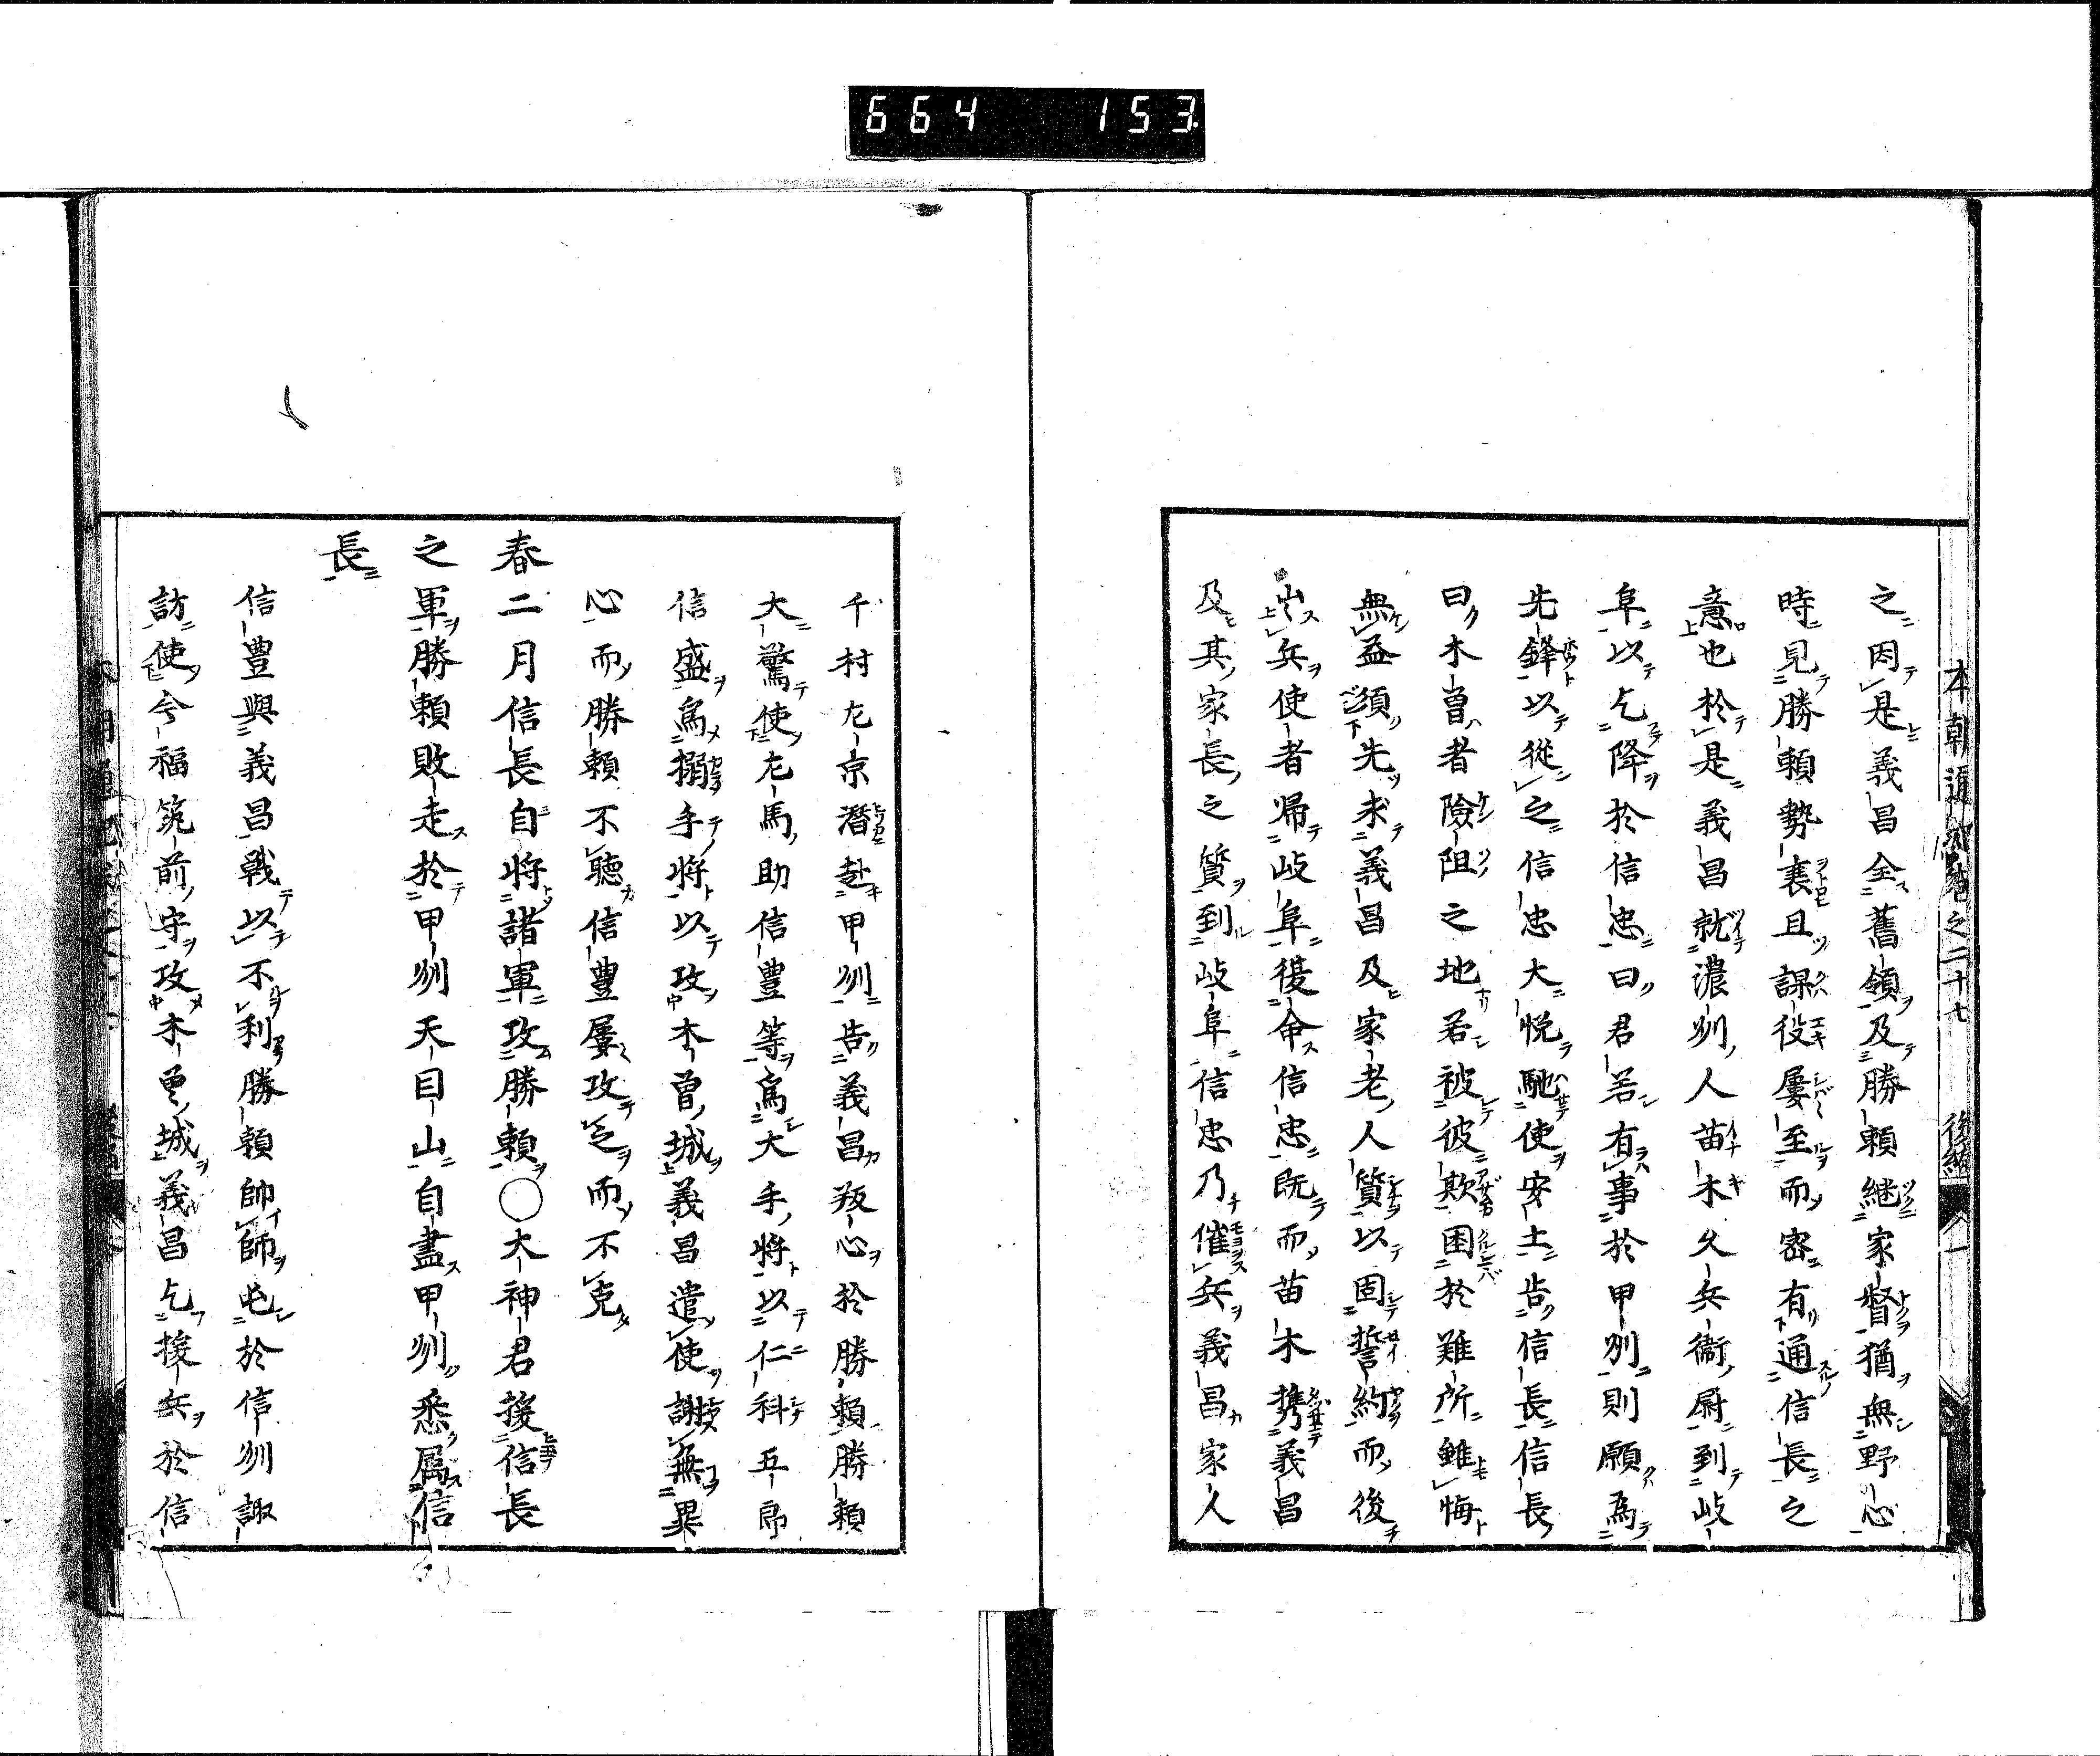 664 153
之因是義昌全舊領及勝頼継家督猶無野心
時見勝頼勢衰且課役屢至而密有通信長之
意也於是義昌就濃州人苗木久兵衞尉到岐
阜以乞降於信忠曰君若有事於甲州則願為
先鋒以從之信忠大悦馳使安土告信長信長
曰木曽者險阻之地若被彼欺困於難所雖悔
無益須先求義昌及家老人質以固誓約而後
出兵使者帰岐阜復命信忠既而苗木携義昌
及其家長之質到岐阜信忠乃催兵義昌家人
千村左京潜赴甲州告義昌叛心於勝頼勝頼
大驚使左馬助信豊等為大手将以仁科五郎
信盛為搦手将以攻木曽城義昌遣使謝無異
心而勝頼不聴信豊屢攻之而不克
春二月信長自将諸軍攻勝頼○大神君援信長
之軍勝頼敗走於甲州天目山自盡甲州悉属信
長
信豊與義昌戦以不利勝頼帥師屯於信州諏
訪使今福筑前守攻木曽城義昌乞援兵於信
本朝通 之二十七 後編